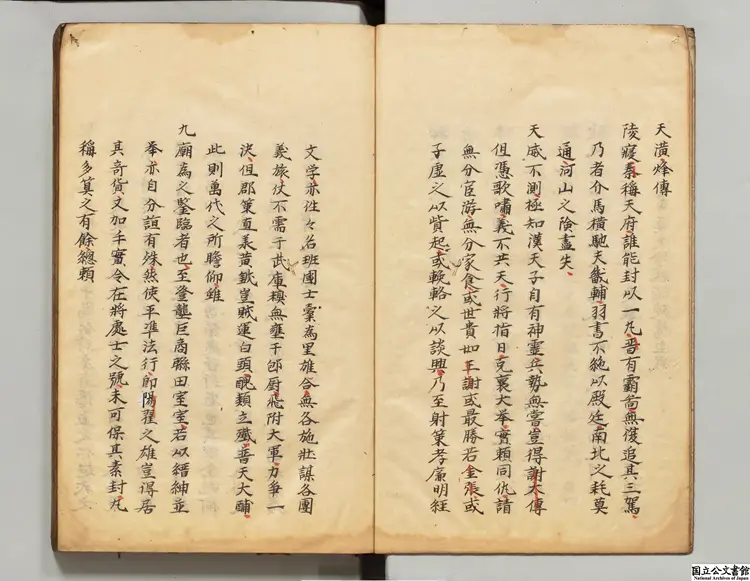 天潢烽傳
陵寢秦稱天府誰能封以一丸晋有霸啚無復追其三駕
乃者介馬橫馳夫畿輔羽書不絶以殿廷南北之耗莫
通河山之險盡失
天威不測極知漢天子自有神靈兵勢無嘗豈得謝太傅
但憑歌嘯義不共天行將指日克襄大举實頼同仇請
無分宦游無分家食或世貴如王謝或最勝若金張或
子虛之以貲起或輓輅之以談興乃至射策孝廉明經
文学亦往々名班國士彙為里雄合無各施壯謀各團
義旅仗不需于武庫糗無壅于郇厨飛附大軍力争一
決但郡策直羡黄鉞豈賊運白頭醜類立殲普天大酺
此則萬代之所瞻仰雖
九廟為之鑒臨者也至登壟巨商縣田室室若以縉紳並
奉亦自分誼有殊然使平準法行即陽翟之雄豈得居
其奇貨又加手實令在將處士之號未可保其素封凡
稱多莫之有餘總頼
国立公文書館
National Archives of Japan